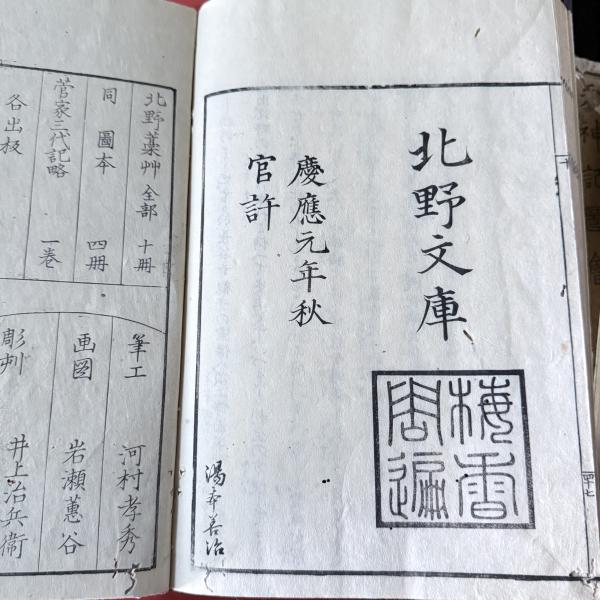 北野文庫
梅香
周遍
慶應元年秋
官許
湯本善治
北野藁艸 全部 十冊
同 圖本 四冊
菅家三代記略 一巻
各出板
筆工 河村孝秀
画図 岩瀬蕙谷
彫刋 井上治兵衛
四十七